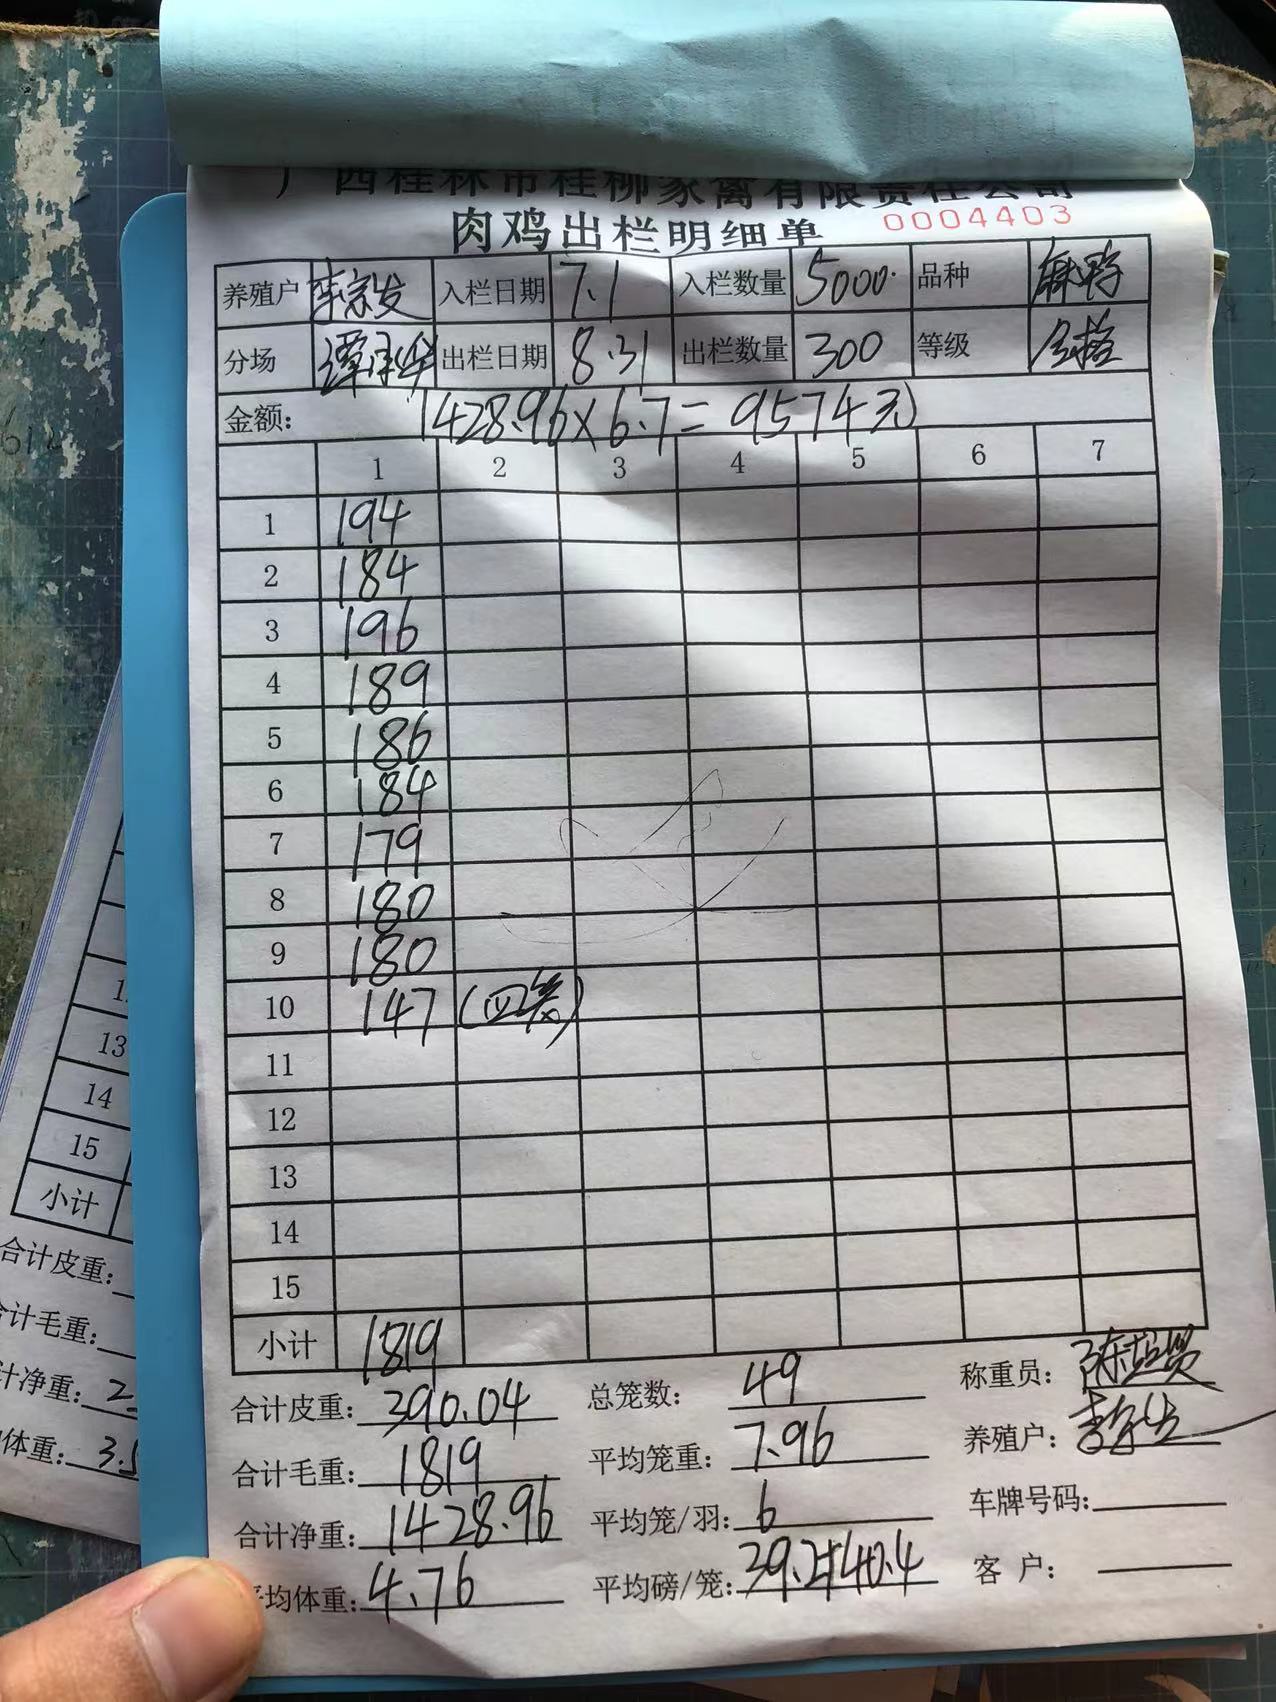 广西桂林市桂柳家禽有限责任公司
肉鸡出栏明细单 0004403
养殖户 李宗发 入栏日期 7.1 入栏数量 5000 品种 麻鸭
分场 出栏日期 8.31 出栏数量 300 等级 合格
金额: 1428.96×6.7=9574元
1 2 3 4 5 6 7
1 194
2 184
3 196
4 189
5 186
6 184
7 179
8 180
9 180
10 147 (四笼)
11
12
13
14
15
小计 1819
合计皮重: 390.04 总笼数: 49 称重员:
合计毛重: 1819 平均笼重: 7.96 养殖户:
合计净重: 1428.96 平均笼/羽: 6 车牌号码:
平均体重: 4.76 平均磅/笼: 客户:
13
14
15
小计
合计皮重:
合计毛重:
计净重: 2
体重: 3.5